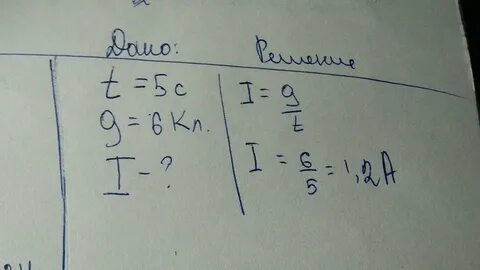 Дано:
t = 5 с
g = 6 Кл.
I - ?
Решение
I = g/t
I = 6/5 = 1,2 А